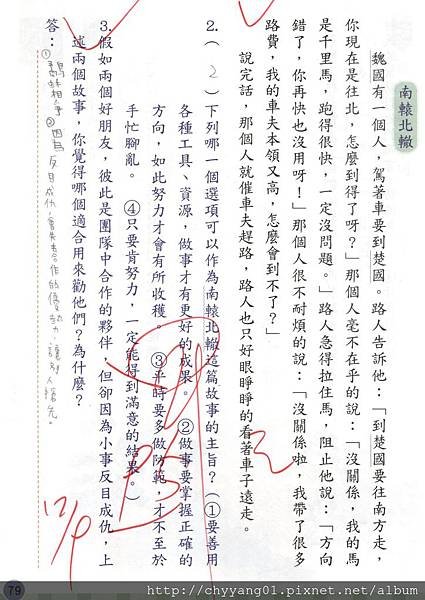 南轅北轍
魏國有一個人，駕著車要到楚國。路人告訴他：「到楚國要往南方走，
你現在是往北，怎麼到得了呀？」那個人毫不在乎的說：「沒關係，我的馬
是千里馬，跑得很快，一定沒問題。」路人急得拉住馬，阻止他說：「方向
錯了，你再快也沒用呀！」那個人很不耐煩的說：「沒關係啦，我帶了很多
路費，我的車夫本領又高，怎麼會到不了？」
說完話，那個人就催車夫趕路，路人也只好眼睜睜的看著車子遠走。
2.（2）下列哪一個選項可以作為南轅北轍這篇故事的主旨？（①要善用
各種工具、資源，做事才有更好的成果。 ②做事要掌握正確的
方向，如此努力才會有所收穫。 ③平時要多做防範，才不至於
手忙腳亂。 ④只要肯努力，一定能得到滿意的結果。）
3.假如兩個好朋友，彼此是團隊中合作的夥伴，但卻因為小事反目成仇，上
述兩個故事，你覺得哪個適合用來勸他們？為什麼？
答：①鷸蚌相爭②因為反目成仇，會失去合作的優勢力，讓別人搶先。
12/9
79
http://chyyang01.pixnet.net/album